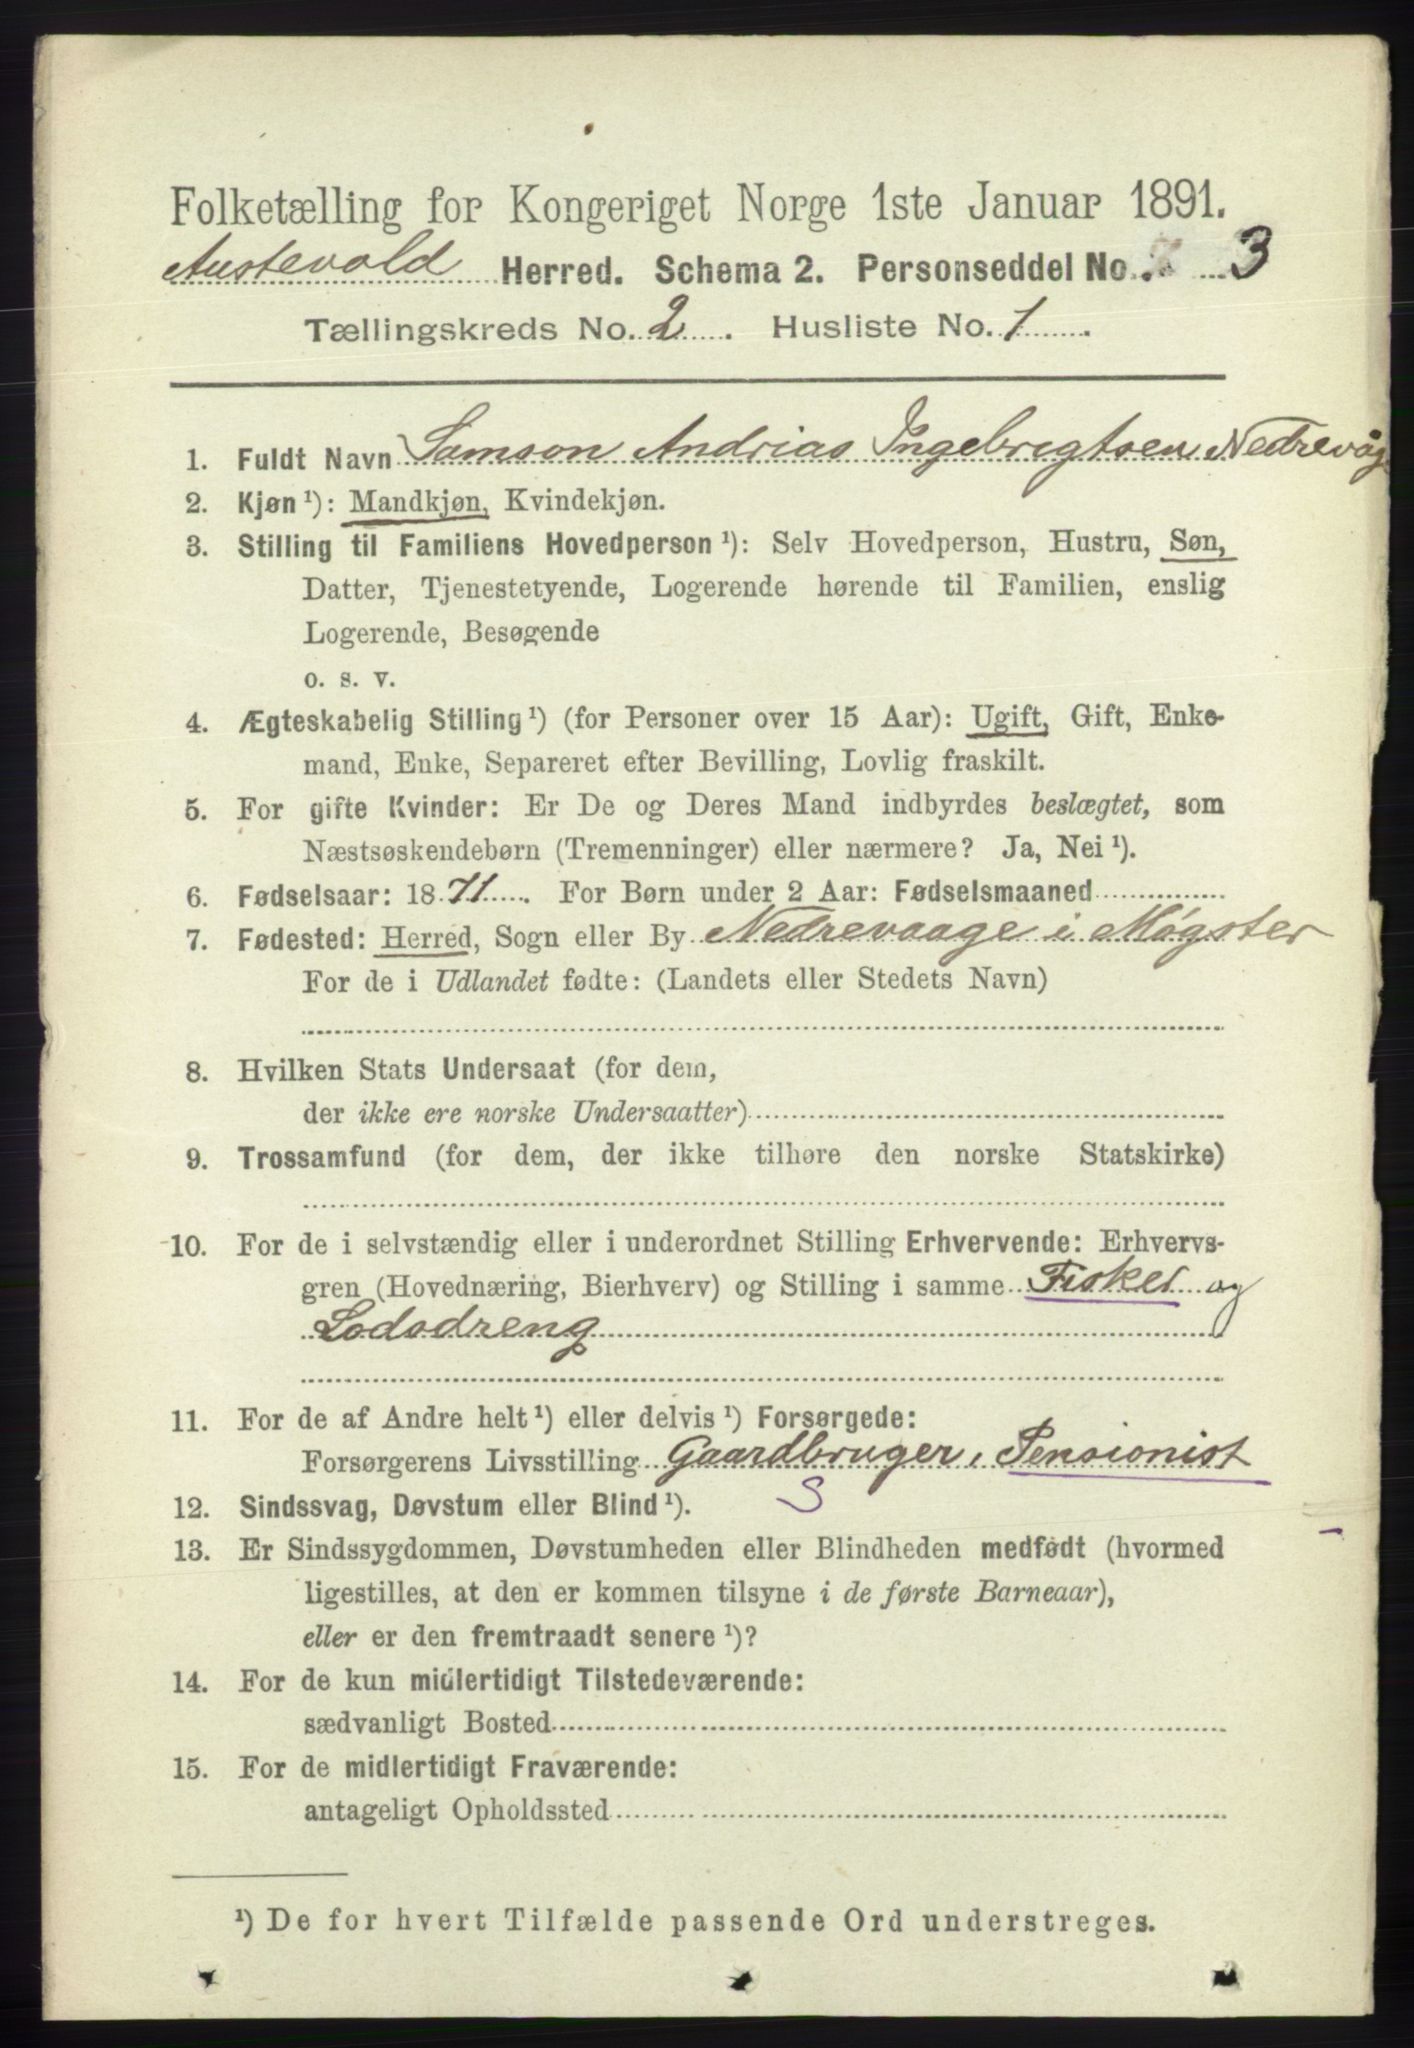 Folketælling for Kongeriget Norge 1ste Januar 1891.
Austevold Herred. Schema 2. Personseddel No. 3
Tællingskreds No. 2. Husliste No. 1.
1. Fuldt Navn Samson Andrias Ingebrigtsen Nedrevåg
2. Kjøn ¹): Mandkjøn, Kvindekjøn.
3. Stilling til Familiens Hovedperson ¹): Selv Hovedperson, Hustru, Søn,
Datter, Tjenestetyende, Logerende hørende til Familien, enslig
Logerende, Besøgende
o. s. v.
4. Ægteskabelig Stilling ¹) (for Personer over 15 Aar): Ugift, Gift, Enke-
mand, Enke, Separeret efter Bevilling, Lovlig fraskilt.
5. For gifte Kvinder: Er De og Deres Mand indbyrdes beslægtet, som
Næstsøskendebørn (Tremenninger) eller nærmere? Ja, Nei ¹).
6. Fødselsaar: 1871. For Børn under 2 Aar: Fødselsmaaned
7. Fødested: Herred, Sogn eller By Nedrevaage i Møgster
For de i Udlandet fødte: (Landets eller Stedets Navn)
8. Hvilken Stats Undersaat (for dem,
der ikke ere norske Undersaatter)
9. Trossamfund (for dem, der ikke tilhøre den norske Statskirke)
10. For de i selvstændig eller i underordnet Stilling Erhvervende: Erhvervs-
gren (Hovednæring, Bierhverv) og Stilling i samme Fisker og
Lodsdreng
11. For de af Andre helt ¹) eller delvis ¹) Forsørgede:
Forsørgerens Livsstilling Gaardbruger, Pensionist
12. Sindssvag, Døvstum eller Blind ¹). S
13. Er Sindssygdommen, Døvstumheden eller Blindheden medfødt (hvormed
ligestilles, at den er kommen tilsyne i de første Barneaar),
eller er den fremtraadt senere ¹)?
14. For de kun midlertidigt Tilstedeværende:
sædvanligt Bosted
15. For de midlertidigt Fraværende:
antageligt Opholdssted
¹) De for hvert Tilfælde passende Ord understreges.